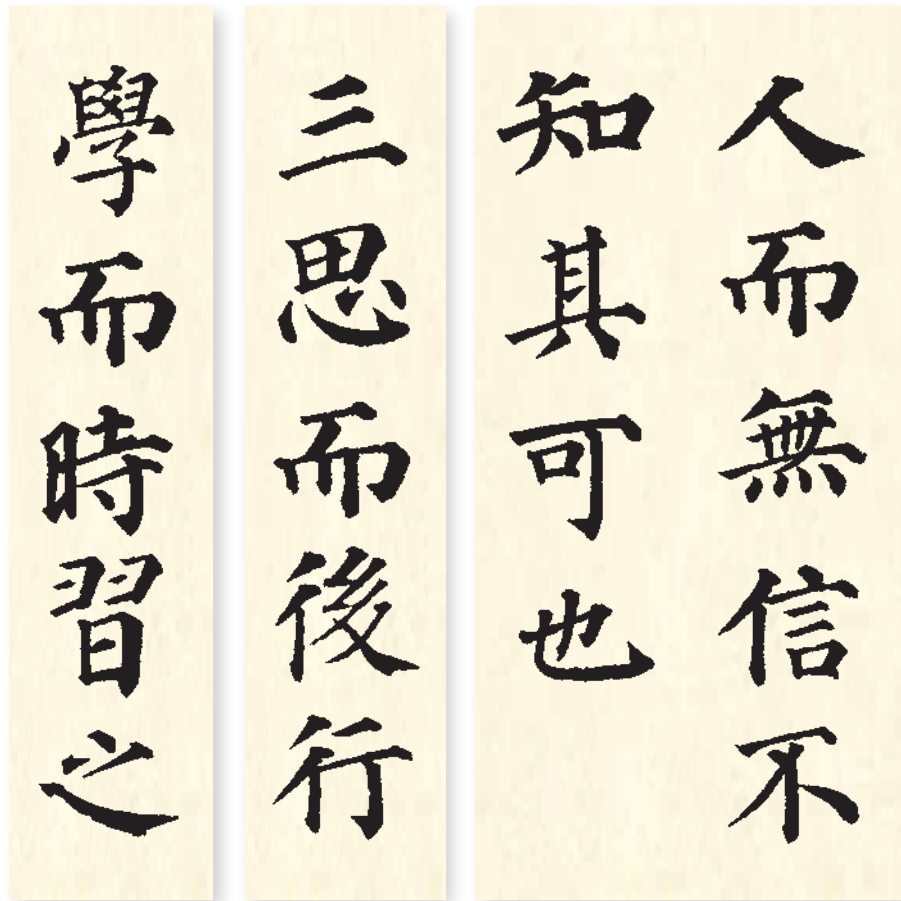 人而無信不
知其可也
三思而後行
學而時習之